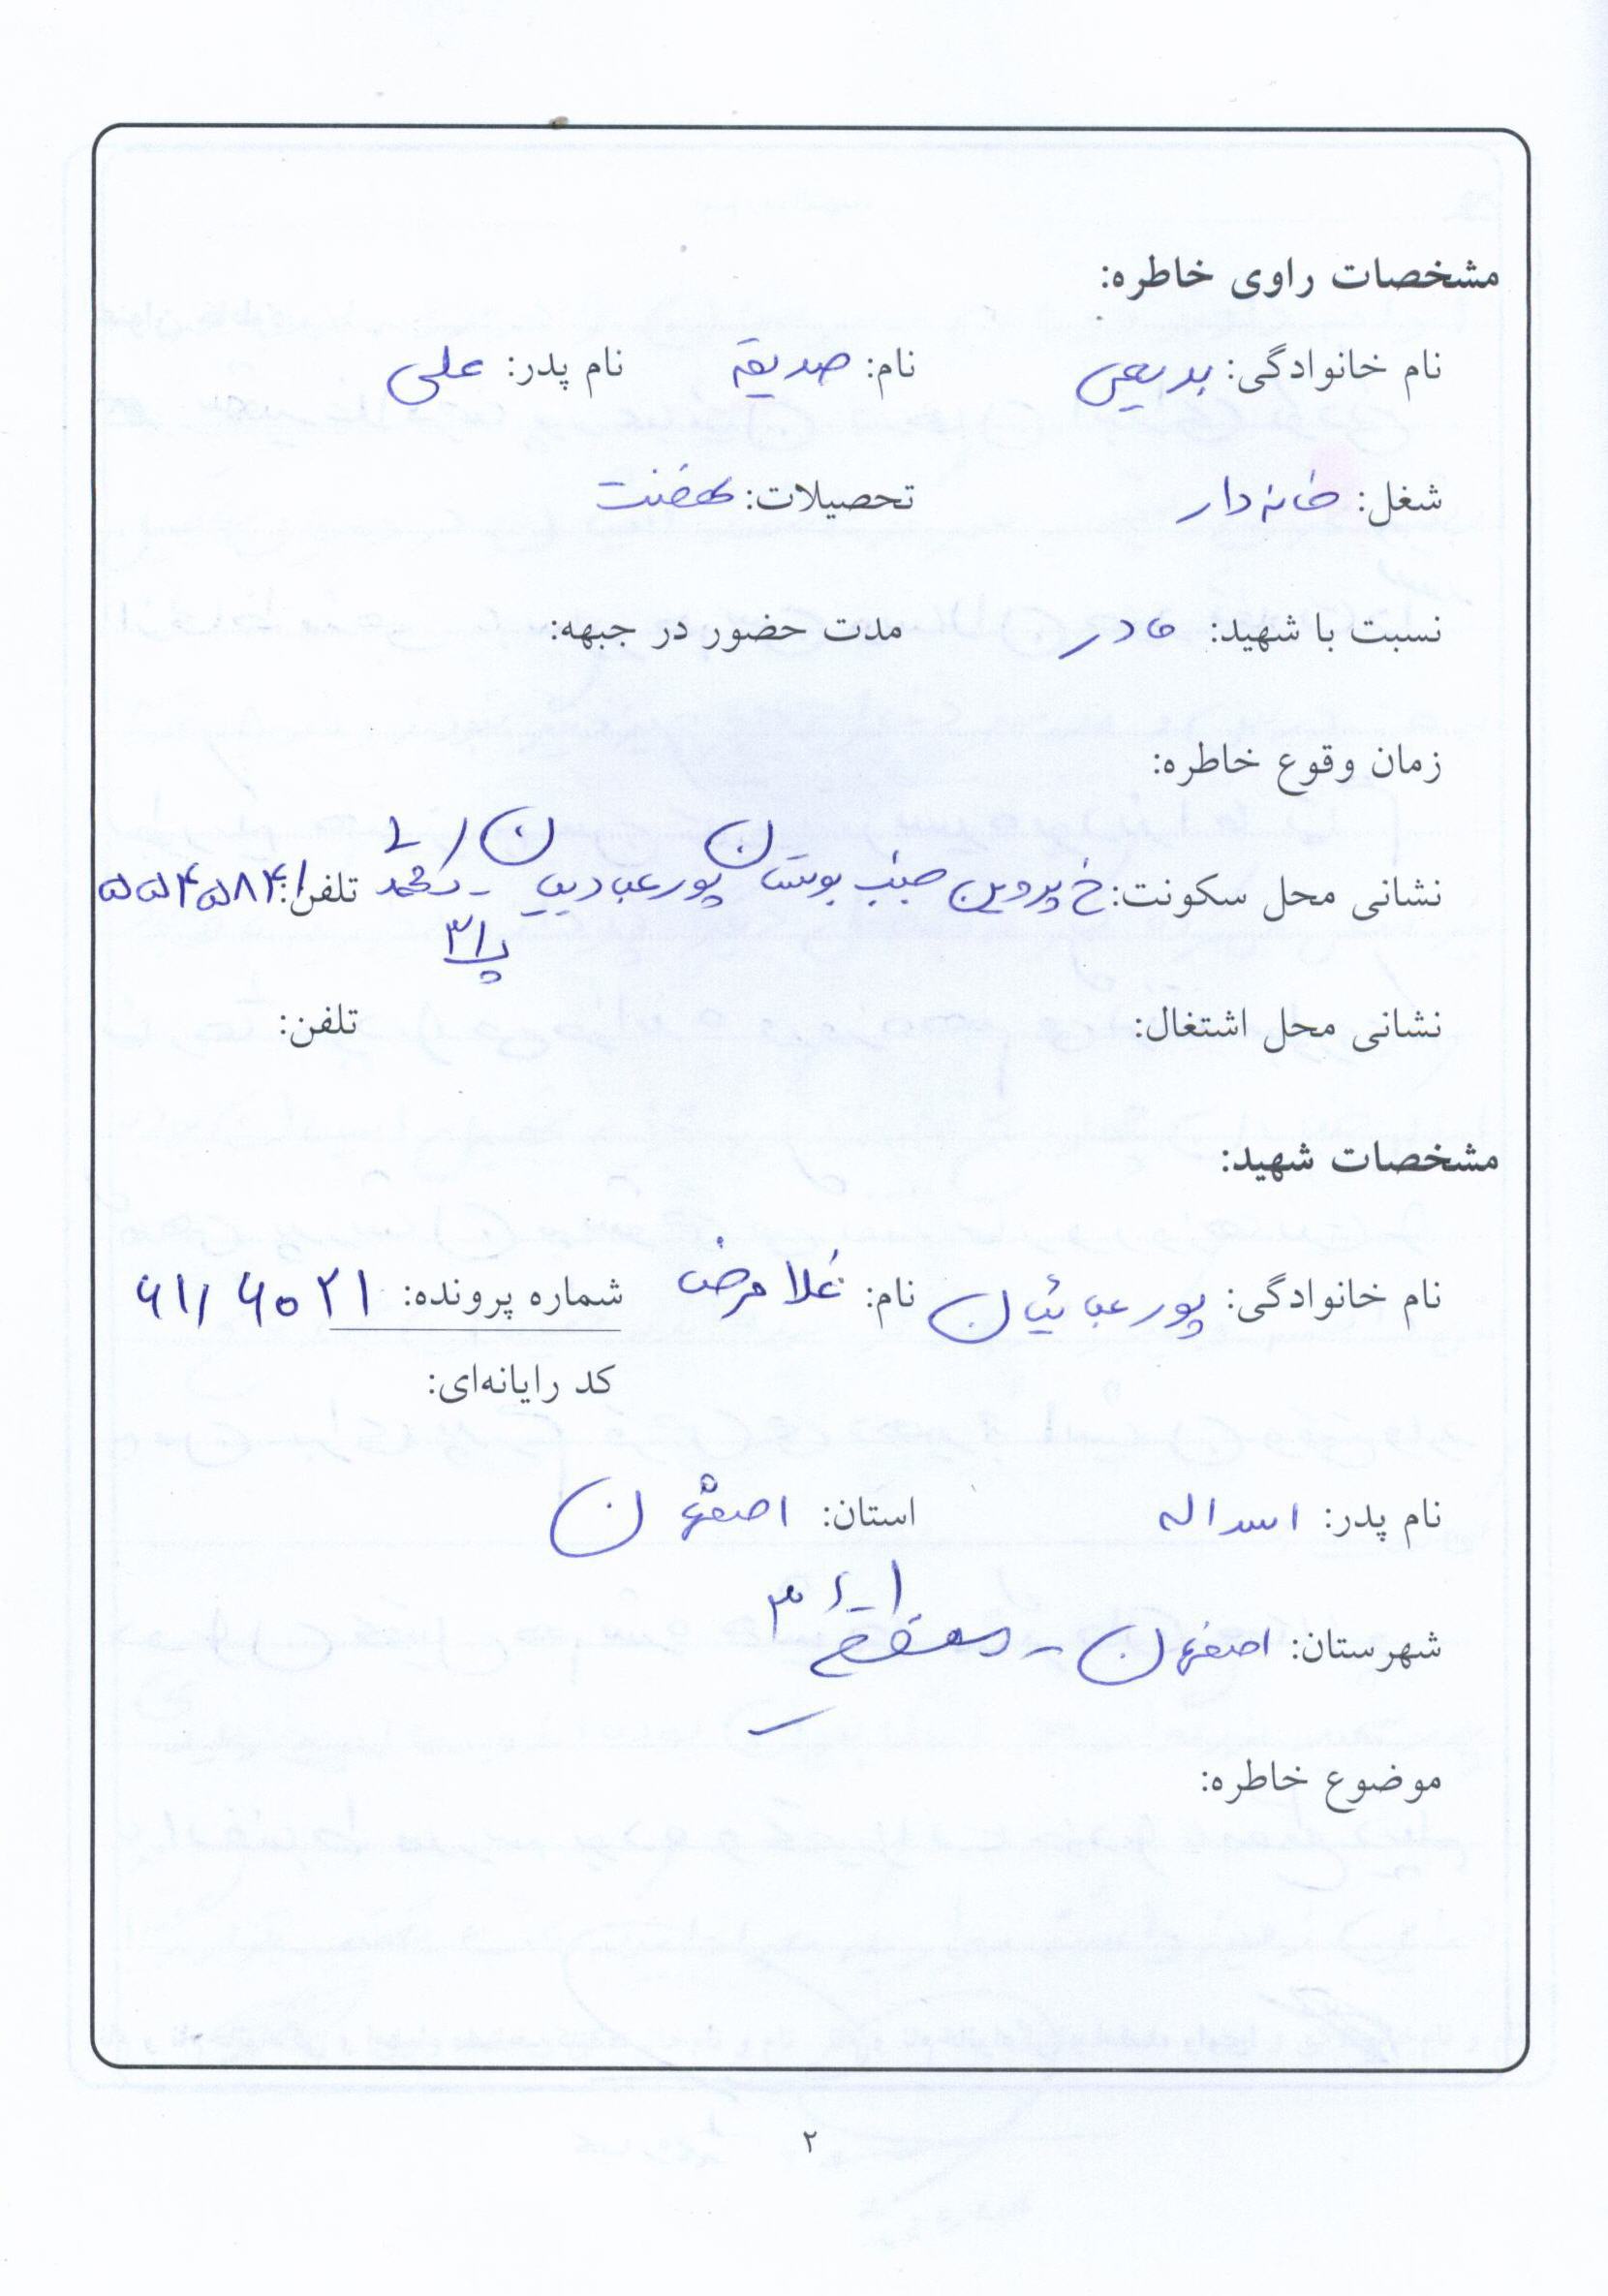 مشخصات راوی خاطره:
نام خانوادگی: بدیعی نام: صدیقه نام پدر: علی
شغل: خانه دار تحصیلات: نهضت
نسبت با شهید: مادر مدت حضور در جبهه:
زمان وقوع خاطره:
نشانی محل سکونت: خ پروین جنب بوستان پورعبادیان تلفن: ۵۵۴۵۸۴۱
پ ۳۱
نشانی محل اشتغال: تلفن:
مشخصات شهید:
نام خانوادگی: پور عبائیان نام: غلامرضا شماره پرونده: ۶۱/۶۰۲۱
کد رایانه‌ای:
نام پدر: اسداله استان: اصفهان
شهرستان: اصفهان - منطقه ۳
موضوع خاطره:
۲